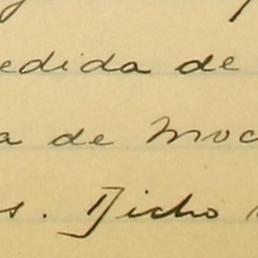 edida de
a de Moc
s. Dicho